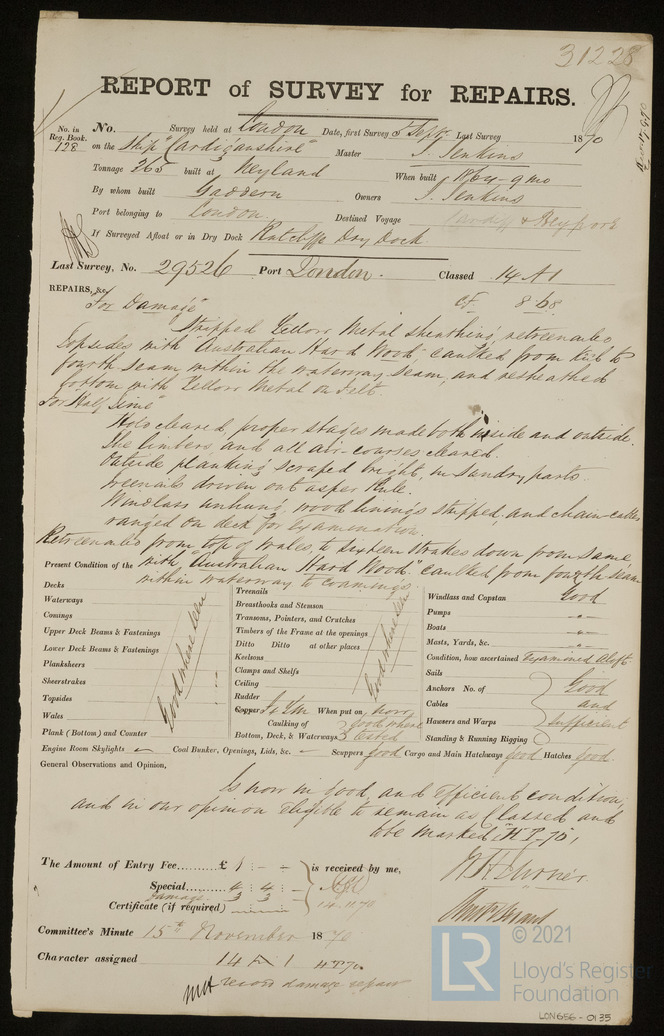 31228
REPORT of SURVEY for REPAIRS.
No. in Reg. Book. 128
No. Survey held at London Date, first Survey 5 Septr Last Survey 1870
on the Ship "Cardiganshire" Master J. Jenkins
Tonnage 265 built at Neyland When built 1864-9mo
By whom built Gaddern Owners J. Jenkins
Port belonging to London Destined Voyage Cardiff &
If Surveyed Afloat or in Dry Dock Ratcliffe Dry Dock
Last Survey, No. 29526 Port London. Classed 14 A1
REPAIRS, &c. CF 8 68
"For Damage"
Stripped Yellow Metal Sheathing, retreenailed
topsides with "Australian Hard Wood" caulked from to
fourth seam, within the waterway seam, and resheathed
bottom with Yellow Metal on Felt.
For Half Time"
Hold cleared, proper stages made both inside and outside.
The limbers, and all air-courses cleared.
Outside planking scraped bright, in sundry parts.
treenails driven out as per Rule.
Windlass unhung, wood linings stripped, and chain-cables
ranged on deck for examination.
Retreenailed from top of wales, to sixteen strakes down from same
with "Australian Hard Wood" caulked from fourth seam
within waterway to coamings.
Present Condition of the
Decks
Waterways
Comings
Upper Deck Beams & Fastenings
Lower Deck Beams & Fastenings
Planksheers
Sheerstrakes
Topsides
Wales
Plank (Bottom) and Counter
Good where seen
Treenails
Breasthooks and Stemson
Transoms, Pointers, and Crutches
Timbers of the Frame at the openings
Ditto Ditto at other places
Keelsons
Clamps and Shelfs
Ceiling
Rudder
Good where seen
Copper YM When put on, now
Caulking of Bottom, Deck, & Waterways good where tested
Windlass and Capstan Good
Pumps -"-
Boats -"-
Masts, Yards, &c. -"-
Condition, how ascertained Examined Aloft
Sails
Anchors No. of
Cables
Hawsers and Warps
Standing & Running Rigging
Good and sufficient
Engine Room Skylights Coal Bunker, Openings, Lids, &c. Scuppers good Cargo and Main Hatchways good Hatches good.
General Observations and Opinion,
Is now in good, and efficient condition,
and in our opinion eligible to remain as Classed and
to be marked "HT-70",
The Amount of Entry Fee......... £ 1 : - -
Special............ 4 : 4 : -
Damage 3 3
Certificate (if required)
is received by me,
14.11.70
Committee's Minute 15th November 1870
Character assigned 14 A 1 HT70
record damage repair
LR
© 2021
Lloyd's Register
Foundation
LON656-0135